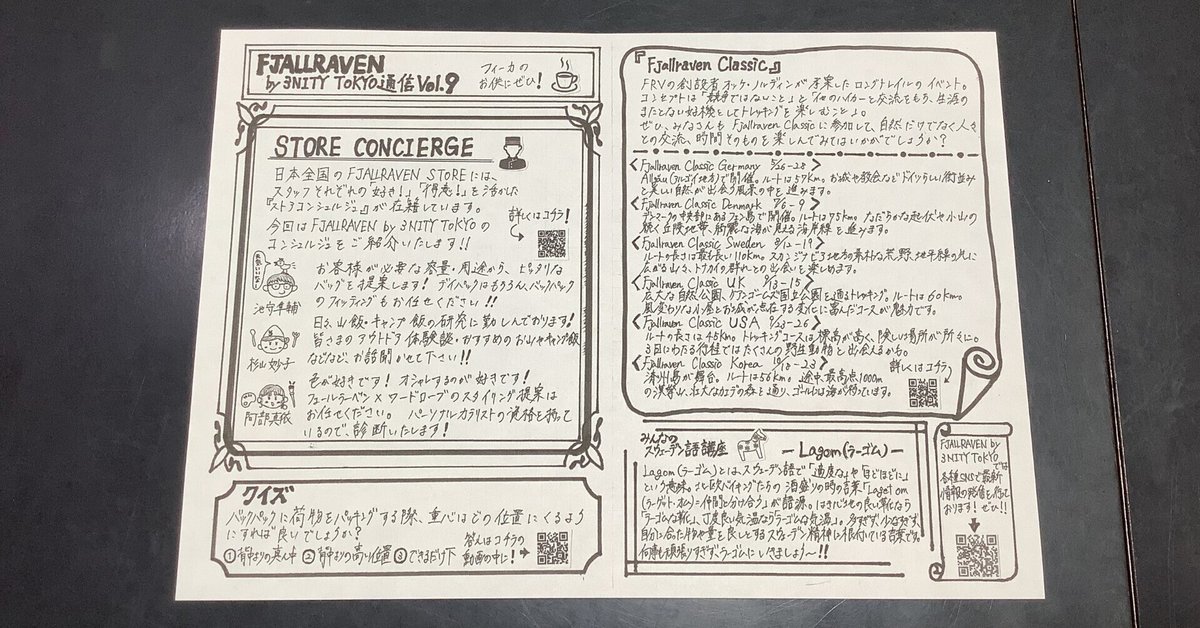 FJALLRAVEN
by 3NITY TOKYO通信 Vol.9
フィーカの
お供にぜひ!
STORE CONCIERGE
日本全国の FJALLRAVEN STOREには、
スタッフそれぞれの「好き!」「得意!」を活かした
『ストアコンシェルジュ』が在籍しています。
今回は FJALLRAVEN by 3NITY TOKYOの
コンシェルジュをご紹介いたします!!
詳しくはコチラ!
お客様が必要な容量・用途から、ピッタリな
バッグを提案します! デイパックはもちろん、バックパック
のフィッティングもお任せください!!
池守隼輔
日々、山飯・キャンプ飯の研究に勤しんでおります!
皆さまのアウトドア体験談・おすすめのお山やキャンプ飯
などなど、お話聞かせて下さい!!
杉山妙子
色が好きです! オシャレするのが好きです!
フェールラーベン×ワードローブのスタイリング提案は
お任せください。 パーソナルカラリストの資格を持って
いるので、診断いたします!
阿部真依
クイズ
バックパックに荷物をパッキングする際、重心はどの位置にくるよう
にすれば良いでしょうか?
①背中よりの真ん中 ②背中よりの高い位置 ③できるだけ下
答えはコチラの
動画の中に!
『Fjallraven Classic』
FRVの創設者オッケ・ノルディンが考案したロングトレイルのイベント。
コンセプトは「競争ではないこと」と「他のハイカーと交流をもち、生涯の
またとない冒険としてトレッキングを楽しむこと」。
ぜひ、みなさんも Fjallraven Classicに参加して、自然だけでなく人々
との交流、時間そのものを楽しんでみてはいかがでしょうか?
<Fjallraven Classic Germany 5/26-28>
Allgäu(アルゴイ地方)で開催。ルートは57km。お城や教会などドイツらしい街並み
と美しい自然が出会う風景の中を進みます。
<Fjallraven Classic Denmark 7/6-9>
デンマークの中央部にあるフュン島で開催。ルートは75km。なだらかな起伏や小山の
続く丘陵地帯、綺麗な海が見える海岸線を進みます。
<Fjallraven Classic Sweden 8/12-19>
ルートの長さは最も長い110km。スカンジナビア地方の素朴な荒野、地平線の先に
広がる山々、トナカイの群れとの出会いも楽しめます。
<Fjallraven Classic UK 9/13-15>
広大な自然公園、ケアンゴームズ国立公園を通るトレッキング。ルートは60km。
風変わりな小屋とお城が点在する変化に富んだコースが魅力です。
<Fjallraven Classic USA 9/23-26>
ルートの長さは45km。トレッキングコースは標高が高く、険しい場所が所々に。
3日にわたる行程ではたくさんの野生動物と出会えるかも。
<Fjallraven Classic Korea
済州島が舞台。ルートは56km。途中、最高点1000m
の漢拏山、壮大なカエデの森を通り、ゴールは海が待っています。
詳しくはコチラ
みんなの
スウェーデン語講座
— Lagom(ラーゴム) —
Lagom(ラーゴム)とは、スウェーデン語で「適度な」や「ほどほどに」
という意味。北欧バイキングたちの酒盛りの時の言葉「Laget om
(ラーゲット・オム)=仲間と分け合う」が語源。はき心地の良い靴なら
「ラーゴムな靴」、丁度良い気温なら「ラーゴムな気温」。多すぎず、少なすぎず、
自分に合った物や量を良しとするスウェーデン精神に根付いている言葉です。
何事も頑張りすぎず、ラーゴムにいきましょう〜!!
FJALLRAVEN by
3NITY TOKYOでは
各種SNSで最新
情報の発信を行って
おります! ぜひ!!